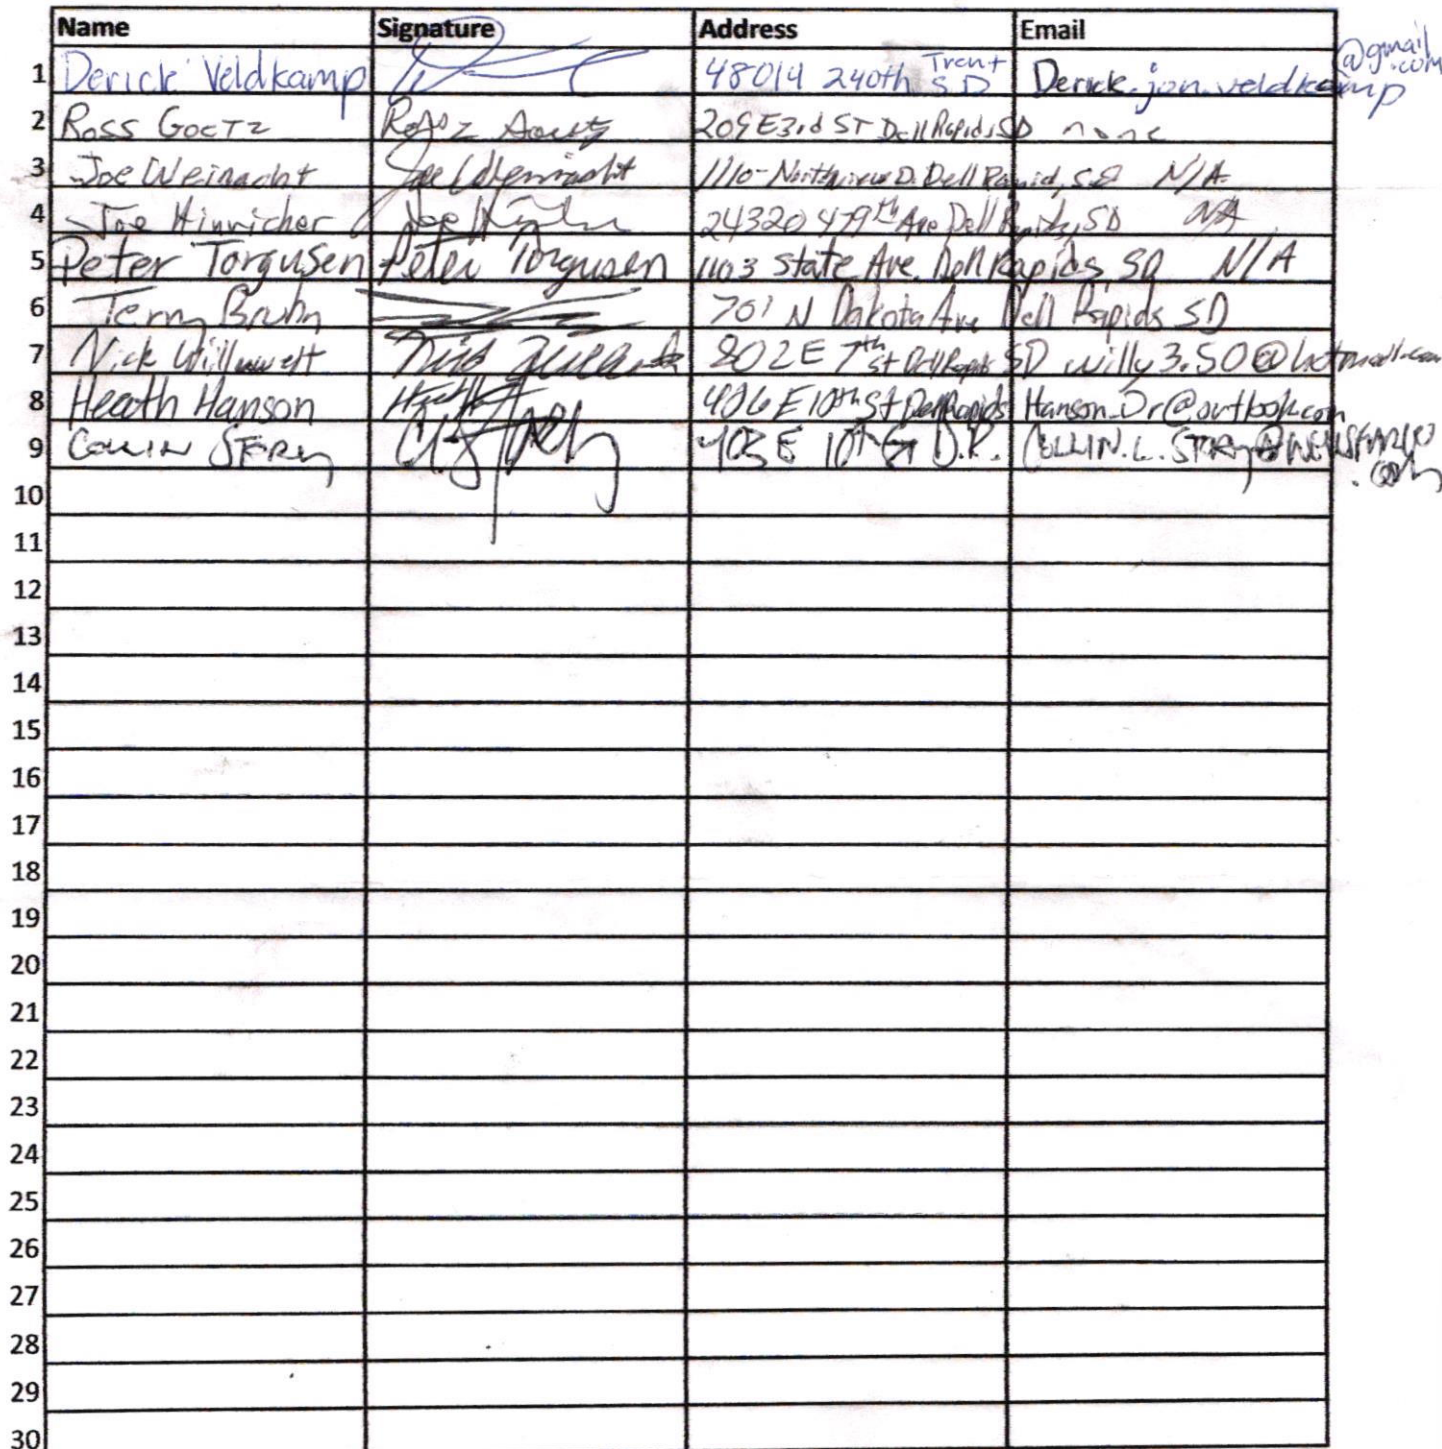 Name Signature Address Email
1 Derick Veldkamp 48014 240th Trent SD Derick.jon.veldkamp @gmail.com
2 Ross Goetz Ross Goetz 209 E 3rd ST Dell Rapids, SD none
3 Joe Weinacht Joe Weinacht 1110 Dell Rapids, SD N/A
4 Joe Hinricher Joe 24320 479th Ave Dell Rapids, SD N/A
5 Peter Torgusen Peter Torgusen 1103 State Ave. Dell Rapids SD N/A
6 Terry Bruhn 701 N Dakota Ave Dell Rapids SD
7 Nick 802 E 7th St Dell Rapids SD willy3.50@hotmail.com
8 Heath Hanson 406 E 10th St Dell Rapids Hanson_Dr@outlook.com
9 Collin 403 E 10th St D.R.
10
11
12
13
14
15
16
17
18
19
20
21
22
23
24
25
26
27
28
29
30